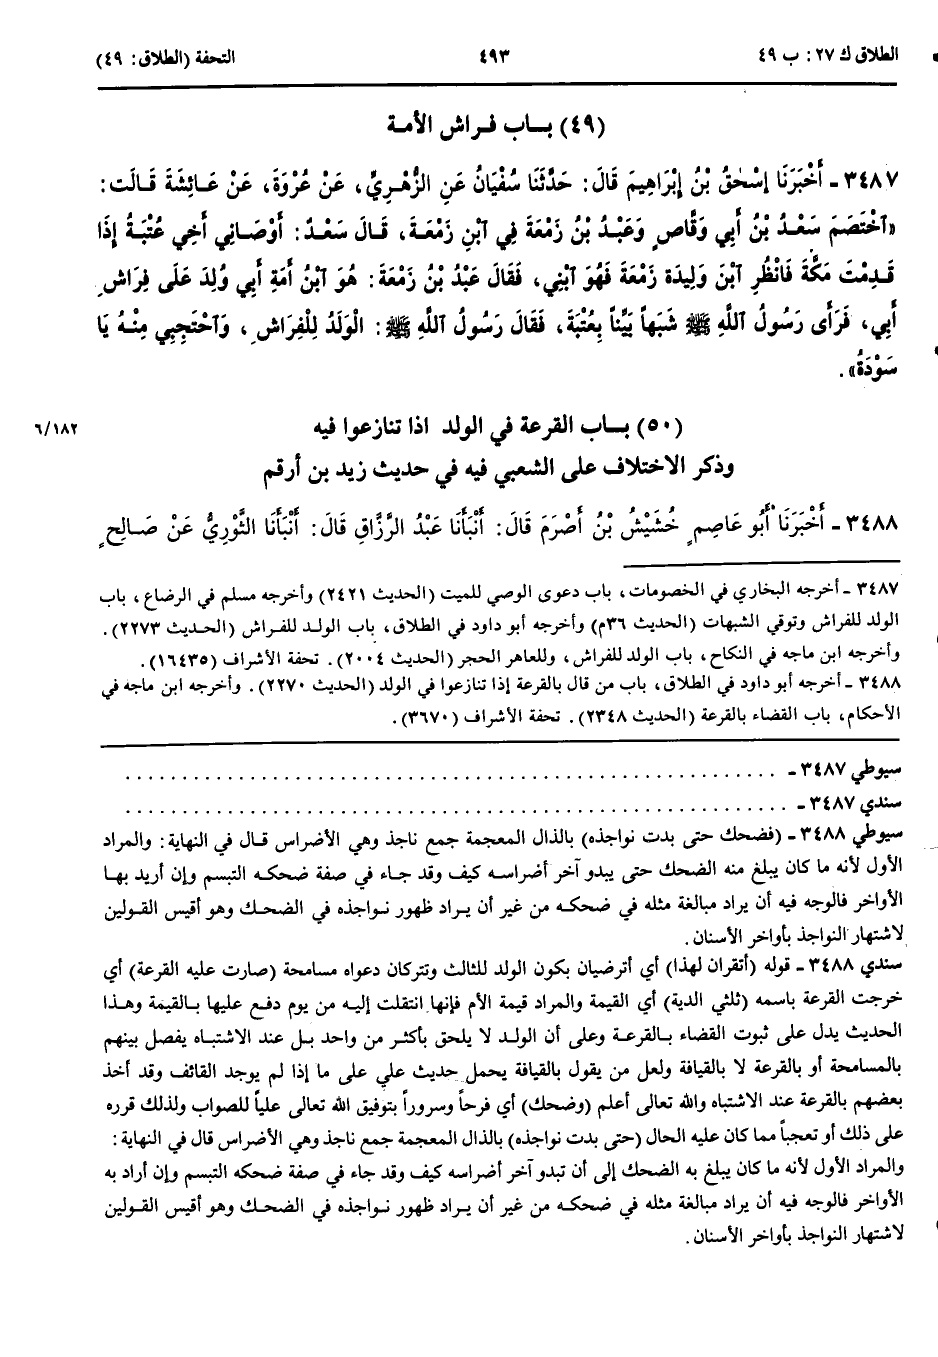 الطلاق ك ٢٧: ب ٤٩ ٤٩٣ التحفة (الطلاق: ٤٩)
(٤٩) بـاب فـراش الأمـة
٣٤٨٧ - أَخْبَرَنَا إِسْحٰقُ بْنُ إِبْرَاهِيمَ قَالَ: حَدَّثَنَا سُفْيَانُ عَنِ الزُّهْرِيِّ، عَنْ عُرْوَةَ، عَنْ عَائِشَةَ قَالَتْ:
«ٱخْتَصَمَ سَعْدُ بْنُ أَبِي وَقَّاصٍ وَعَبْدُ بْنُ زَمْعَةَ فِي ٱبْنِ زَمْعَةَ، قَالَ سَعْدٌ: أَوْصَانِي أَخِي عُتْبَةُ إِذَا
قَدِمْتَ مَكَّةَ فَانْظُرِ ٱبْنَ وَلِيدَةِ زَمْعَةَ فَهُوَ ٱبْنِي، فَقَالَ عَبْدُ بْنُ زَمْعَةَ: هُوَ ٱبْنُ أَمَةِ أَبِي وُلِدَ عَلَى فِرَاشِ
أَبِي، فَرَأَى رَسُولُ ٱللَّهِ ﷺ شَبَهاً بَيِّناً بِعُتْبَةَ، فَقَالَ رَسُولُ ٱللَّهِ ﷺ: الْوَلَدُ لِلْفِرَاشِ، وَٱحْتَجِبِي مِنْـهُ يَا
سَوْدَةُ».
(٥٠) بـاب القرعة في الولد اذا تنازعوا فيه ٦/١٨٢
وذكر الاختلاف على الشعبي فيه في حديث زيد بن أرقم
٣٤٨٨ - أَخْبَرَنَا أَبُو عَاصِمٍ خُشَيْشُ بْنُ أَصْرَمَ قَالَ: أَنْبَأَنَا عَبْدُ الرَّزَّاقِ قَالَ: أَنْبَأَنَا الثَّوْرِيُّ عَنْ صَالِحٍ
٣٤٨٧ - أخرجه البخاري في الخصومات، باب دعوى الوصي للميت (الحديث ٢٤٢١) وأخرجه مسلم في الرضاع، باب
الولد للفراش وتوقي الشبهات (الحديث ٣٦م) وأخرجه أبو داود في الطلاق، باب الولـد للفـراش (الحـديث ٢٢٧٣).
وأخرجه ابن ماجه في النكاح، باب الولد للفراش، وللعاهر الحجر (الحديث ٢٠٠٤). تحفة الأشراف (١٦٤٣٥).
٣٤٨٨ - أخرجه أبو داود في الطلاق، باب من قال بالقرعة إذا تنازعوا في الولد (الحديث ٢٢٧٠). وأخرجه ابن ماجه في
الأحكام، باب القضاء بالقرعة (الحديث ٢٣٤٨). تحفة الأشراف (٣٦٧٠).
سيوطي ٣٤٨٧ - . . . . . . . . . . . . . . . . . . . . . . . . . . . . . .
سندي ٣٤٨٧ - . . . . . . . . . . . . . . . . . . . . . . . . . . . . . .
سيوطي ٣٤٨٨ - (فضحك حتى بدت نواجذه) بالذال المعجمة جمع ناجذ وهي الأضراس قـال في النهاية: والمراد
الأول لأنه ما كان يبلغ منه الضحك حتى يبدو آخر أضراسه كيف وقد جاء في صفة ضحكه التبسم وإن أريد بهـا
الأواخر فالوجه فيه أن يراد مبالغة مثله في ضحكـه من غير أن يـراد ظهور نـواجذه في الضحـك وهو أقيس القـولين
لاشتهار النواجذ بأواخر الأسنان.
سندي ٣٤٨٨ - قوله (أتقران لهذا) أي أترضيان بكون الولد للثالث وتتركان دعواه مسامحة (صارت عليه القرعة) أي
خرجت القرعة باسمه (ثلثي الدية) أي القيمة والمراد قيمة الأم فإنها انتقلت إليـه من يوم دفـع عليها بـالقيمة وهـذا
الحديث يدل على ثبوت القضاء بـالقرعـة وعلى أن الولـد لا يلحق بأكثـر من واحد بـل عند الاشتبـاه يفصل بينهم
بالمسامحة أو بالقرعة لا بالقيافة ولعل من يقول بالقيافة يحمل حديث علي على ما إذا لم يوجد القائف وقد أخذ
بعضهم بالقرعة عند الاشتباه والله تعالى أعلم (وضحك) أي فرحاً وسروراً بتوفيق الله تعالى علياً للصواب ولذلك قرره
على ذلك أو تعجباً مما كان عليه الحال (حتى بدت نواجذه) بالذال المعجمة جمع ناجذ وهي الأضراس قال في النهاية:
والمراد الأول لأنه ما كان يبلغ به الضحك إلى أن تبدو آخر أضراسه كيف وقد جاء في صفة ضحكه التبسم وإن أراد به
الأواخر فالوجه فيه أن يراد مبالغة مثله في ضحكـه من غير أن يـراد ظهور نـواجذه في الضحـك وهو أقيس القـولين
لاشتهار النواجذ بأواخر الأسنان.